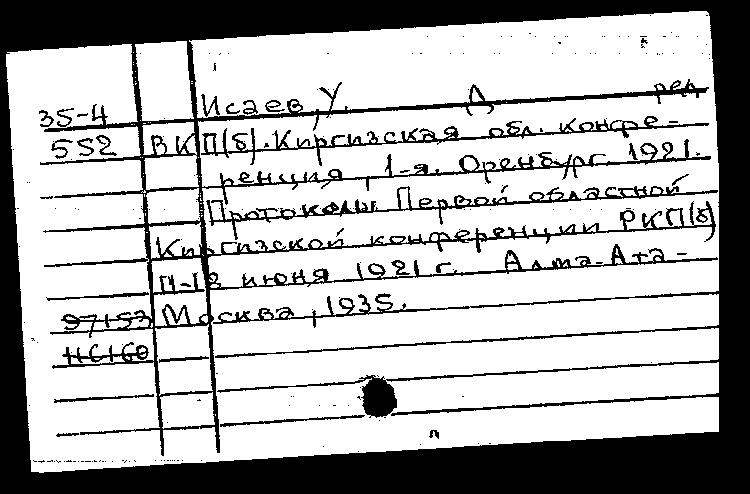 35-4 Исаев, У. Д ред
552 ВКП(б). Киргизская обл. конфе-
ренция, 1-я. Оренбург. 1921.
Протоколы Первой областной
Киргизской конференции РКП(б)
11-18 июня 1921 г. Алма-Ата-
97153 Москва, 1935.
116160
п